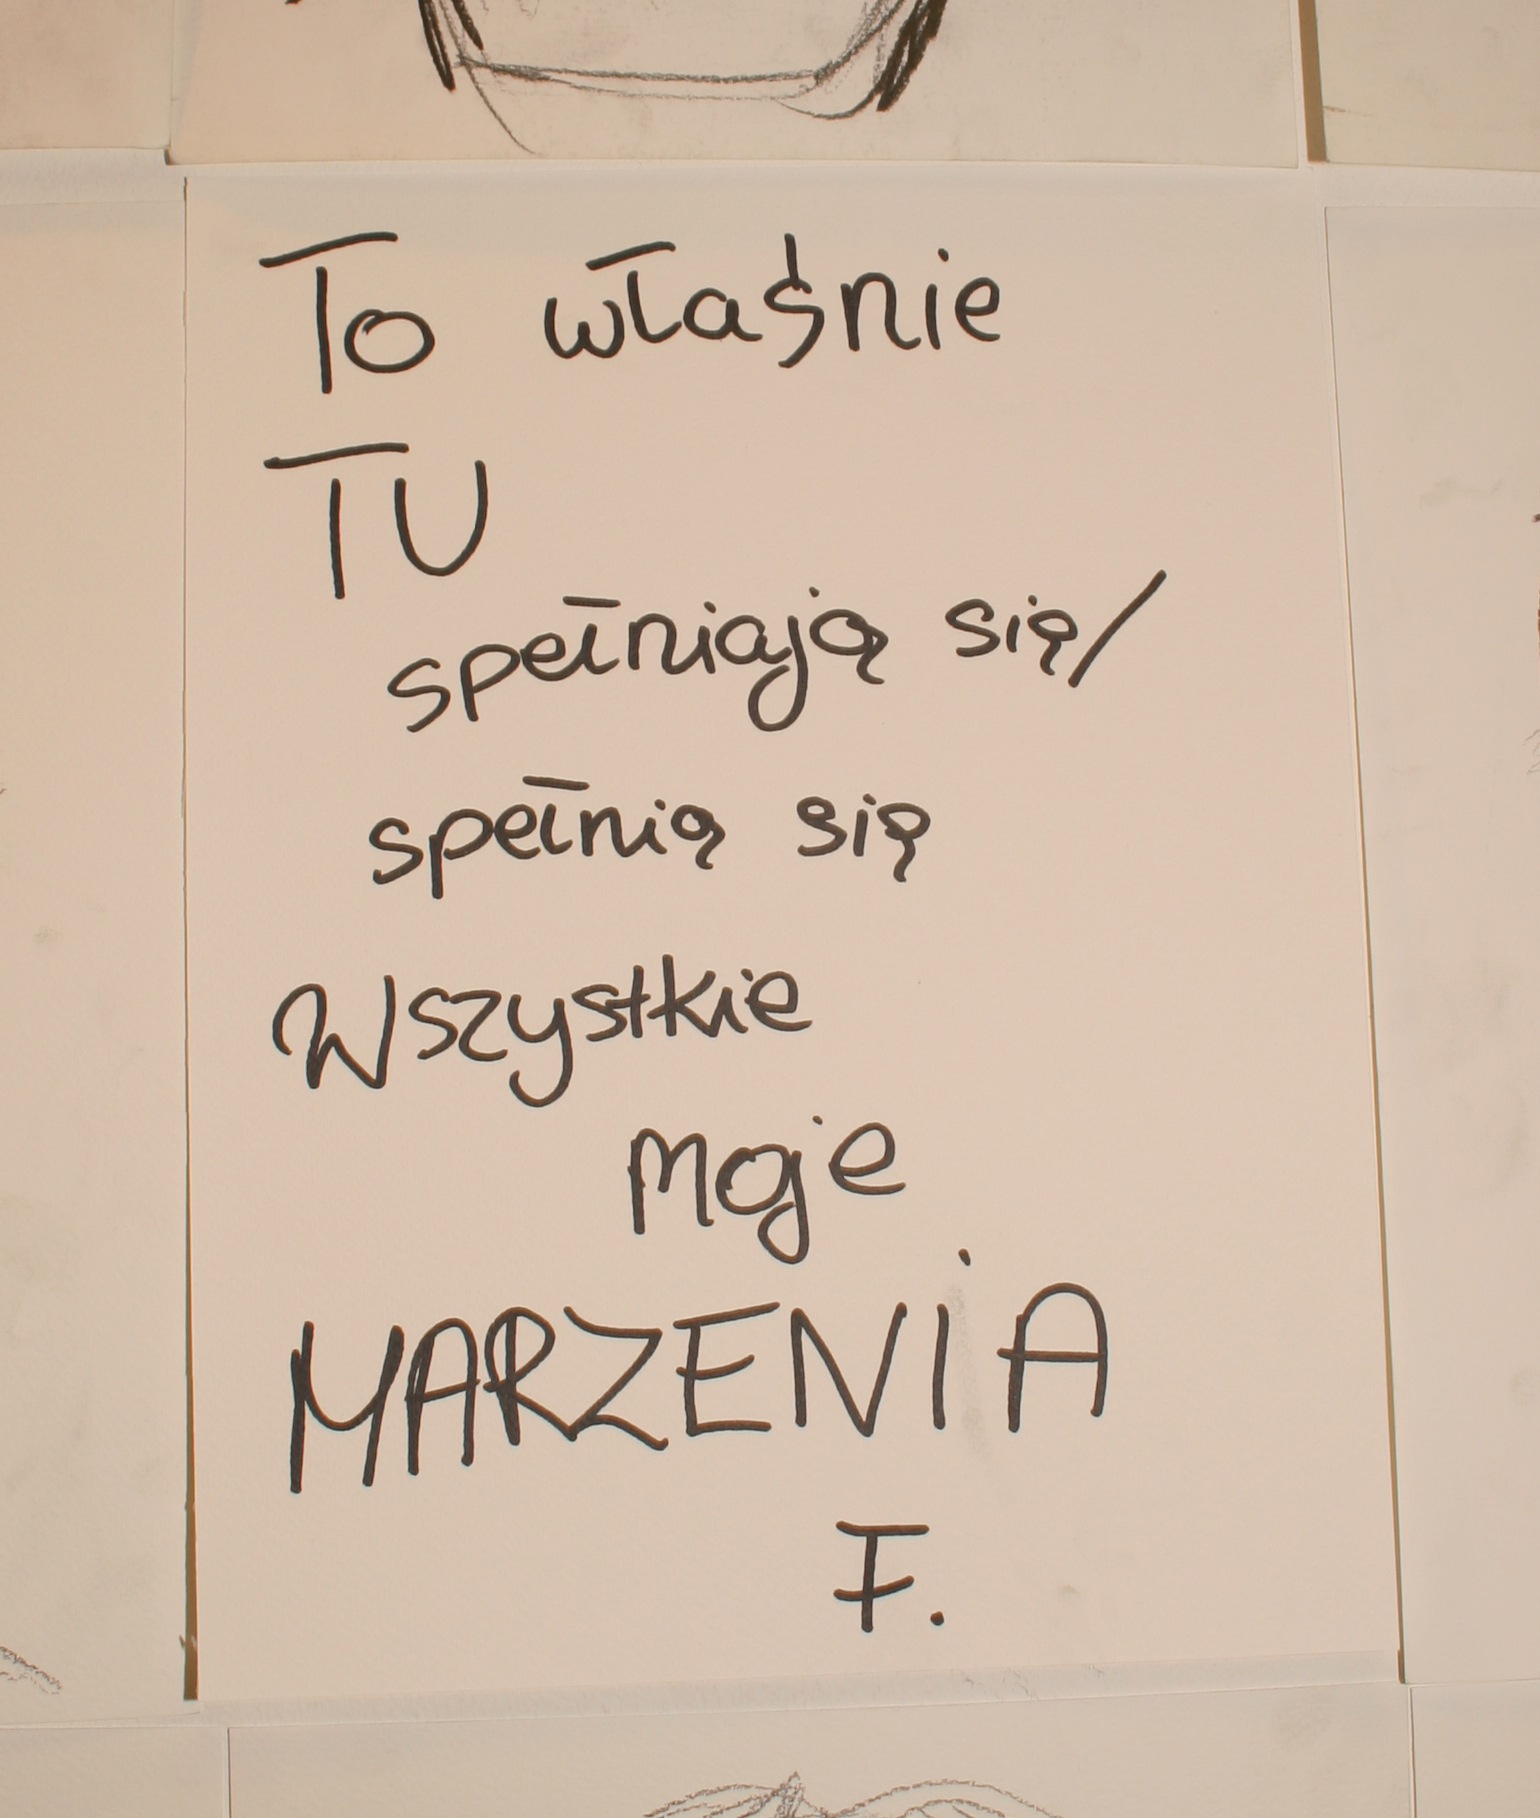 To właśnie
TU
spełniają się/
spełnią się
Wszystkie
moje
MARZENiA
F.